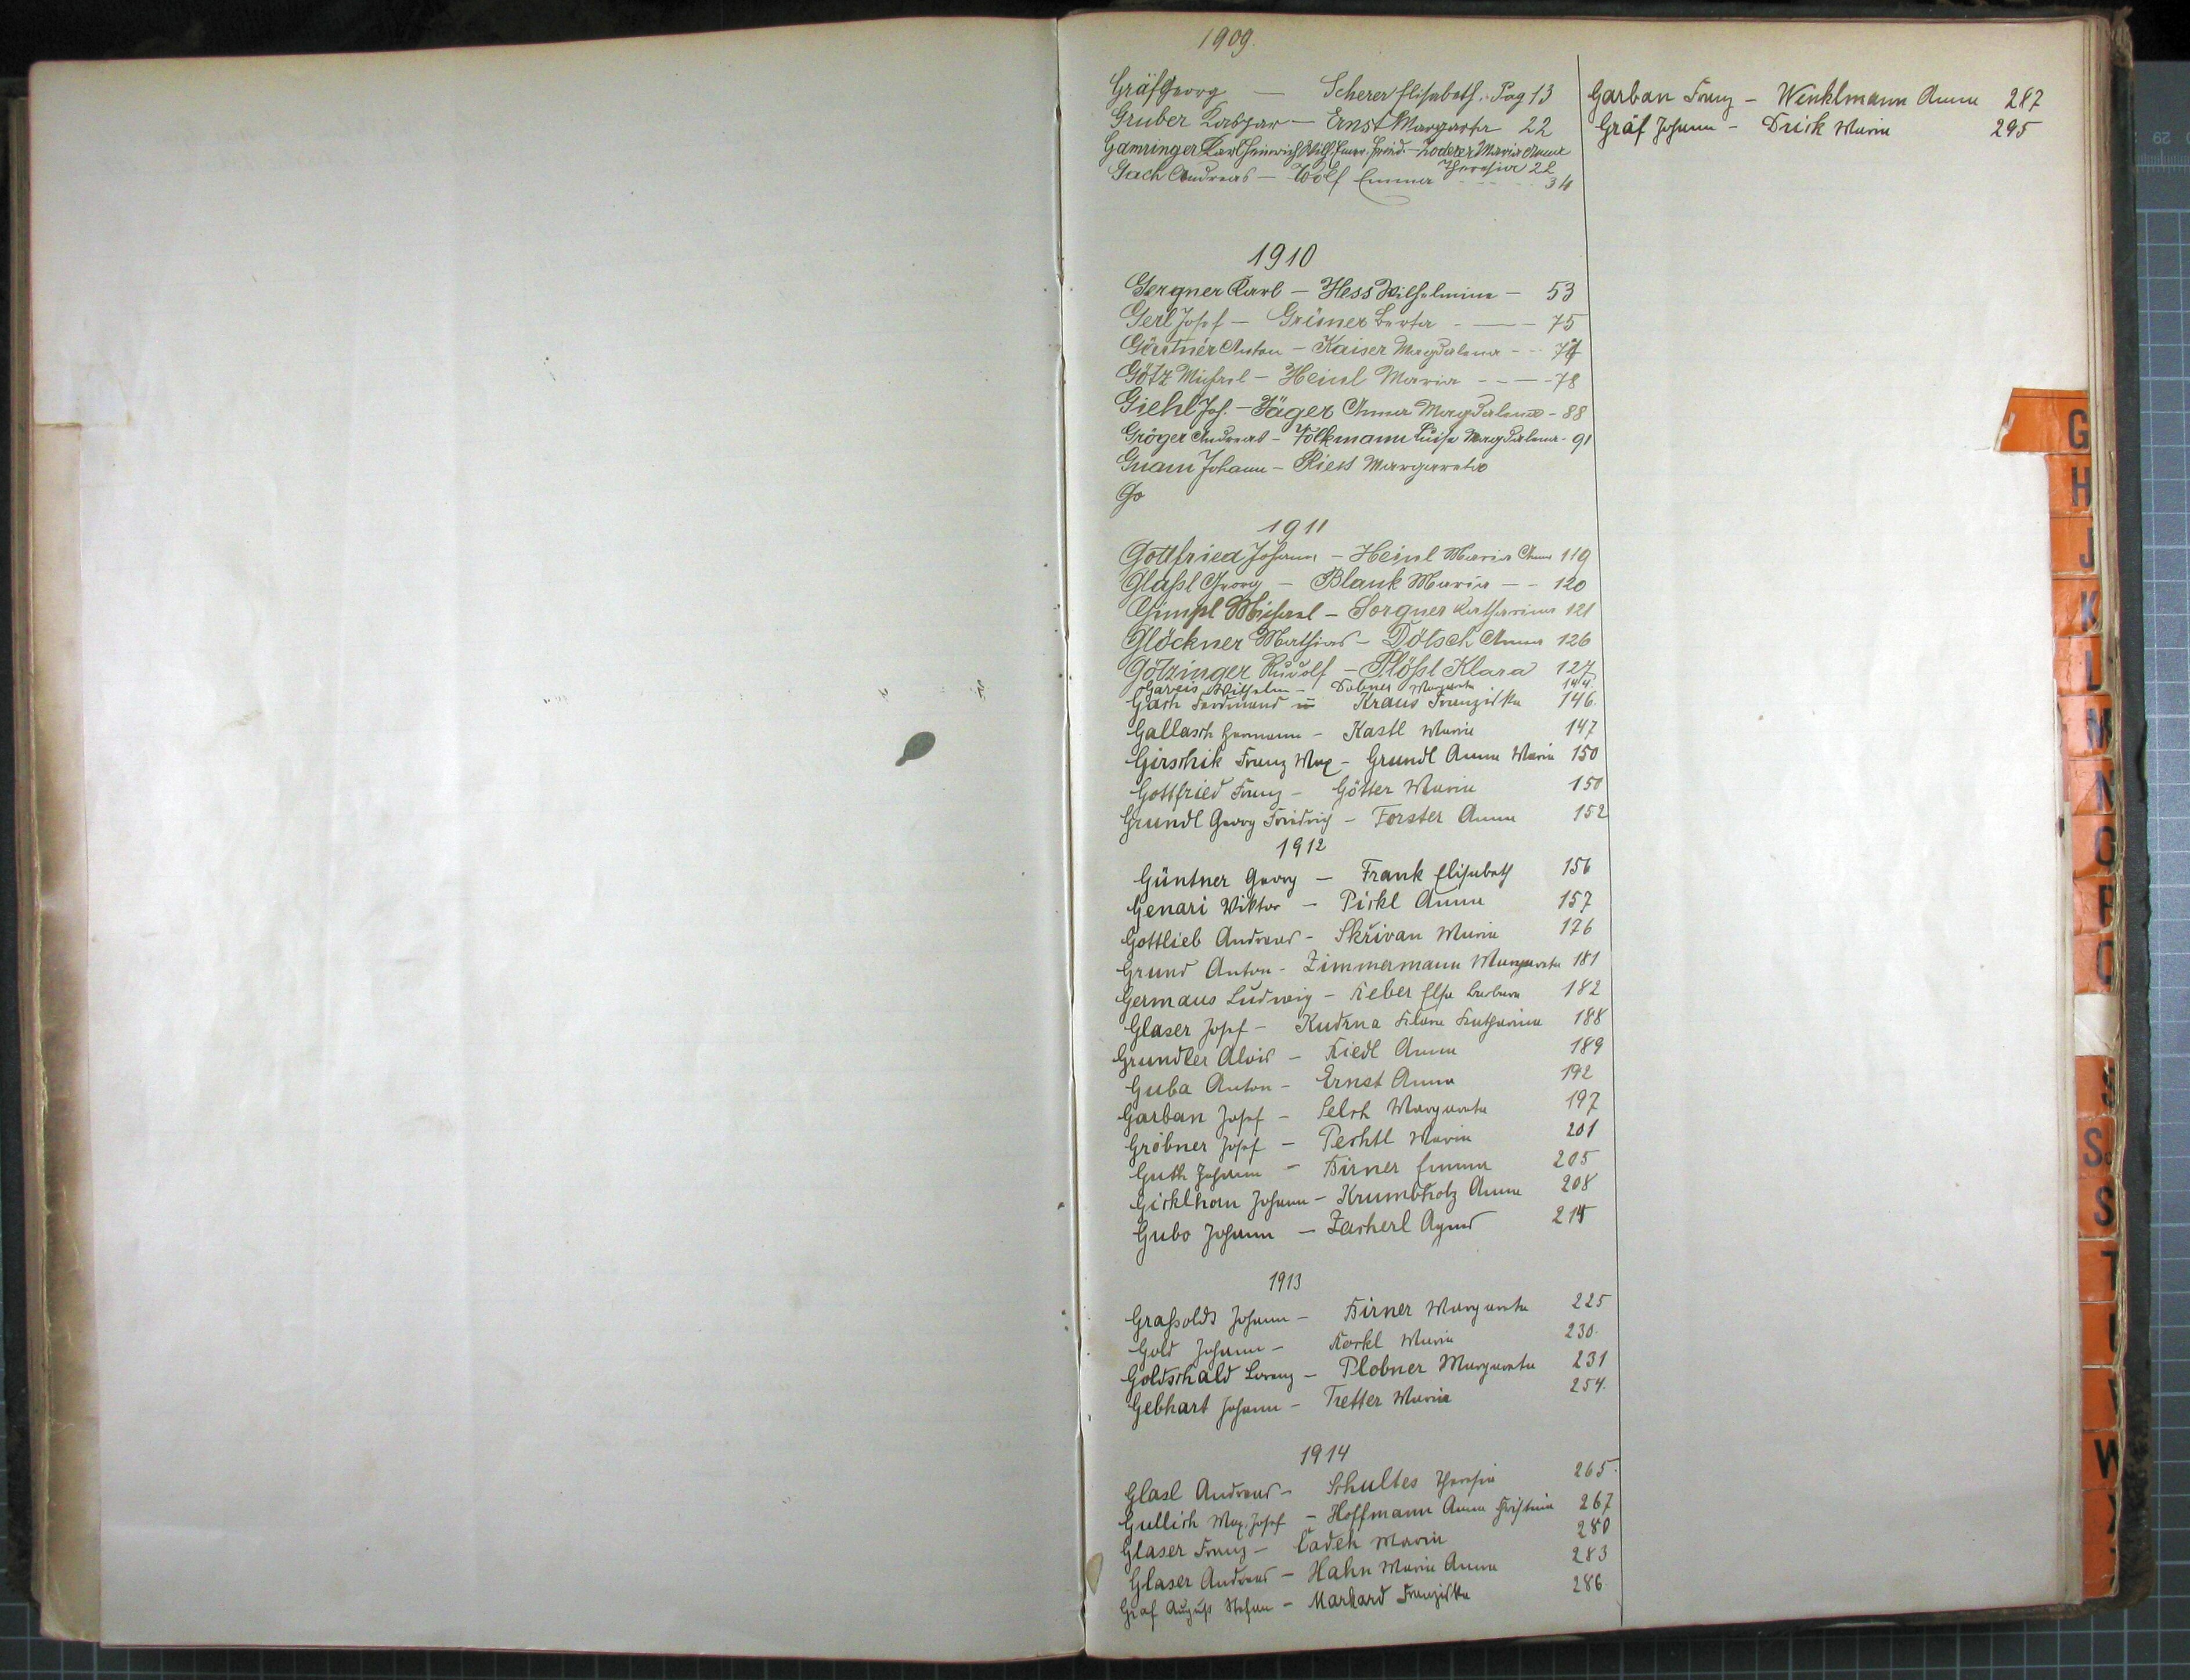 1909.
Gräf Georg — Scherer Elisabeth. Pag 13
Gruber Kaspar — Ernst Margareta 22
Gamringer Karl Heinrich Wilh. Fried. — Zoderer Maria Anna
Theresia 22
Gach Andreas — Wolf Emma 34
1910
Gergner Karl — Hess Wilhelmine — 53
Gerl Josef — Grüner Berta - — - 75
Görtner Anton — Kaiser Magdalena - - 77
Götz Michael — Heinl Maria - - — - 78
Giehl Jos. — Jäger Anna Magdalena - 88
Gröger Andreas — Volkmann Luise Magdalena - 91
Gnam Johann — Riess Margareta
Go
1911
Gottfried Johann — Heinl Maria Anna 119
Glaßl Georg — Blank Maria — - 120
Gimpl Michael — Sorgner Katharina 121
Glöckner Mathias — Dötsch Anna 126
Götzinger Rudolf — Plößl Klara 127
Gareis Wilhelm — Dobner Margareta 144.
Gach Ferdinand u Kraus Franziska 146.
Gallasch Hermann — Kastl Marie 147
Girschik Franz Max — Grundl Anna Marie 150
Gottfried Franz — Götter Marie 150
Grundl Georg Friedrich — Forster Anna 152
1912
Güntner Georg — Frank Elisabeth 156
Genari Wiktor — Pickl Anna 157
Gottlieb Andreas — Skřivan Marie 176
Grund Anton — Zimmermann Margareta 181
Germaus Ludwig — Reber Else Barbara 182
Glaser Josef — Kudrna Klara Katharina 188
Grundler Alois — Riedl Anna 189
Guba Anton — Ernst Anna 192
Garban Josef — Selch Margareta 197
Gröbner Josef — Pechtl Marie 201
Guth Johann — Birner Emma 205
Gicklhorn Johann — Krumbholz Anna 208
Gubo Johann — Zacherl Agnes 214
1913
Graßoldt Johann — Birner Margareta 225
Gold Johann — Rockl Marie 230.
Goldschald Lorenz — Plobner Margareta 231
Gebhart Johann — Tretter Marie 254.
1914
Glasl Andreas — Schultes Theresia 265.
Gullich Max. Josef — Hoffmann Anna Christina 267
Glaser Franz — Cadek Marie 280
Glaser Andreas — Hahn Marie Anna 283
Graf August Stefan — Markard Franziska 286
Garban Franz — Wenklmann Anna 287
Gräf Johann — Drick Marie 295
G
H
J
K
L
M
N
O
P
Q
S
S.
S
T
U
V
W
X